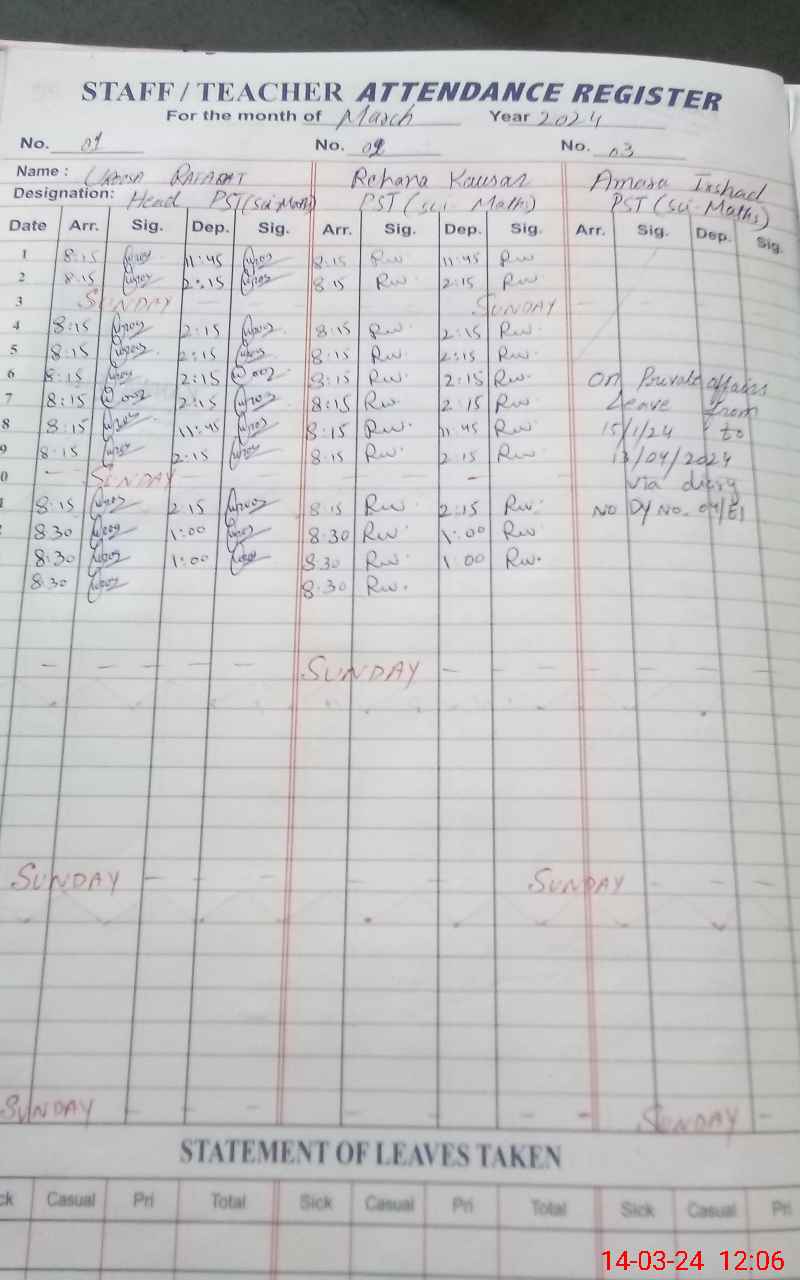 STAFF / TEACHER ATTENDANCE REGISTER
For the month of March Year 2024
No. 01 No. 02 No. 03
Name : Rafaqat Rehana Kausar Amara Irshad
Designation: Head PST (Sci-Maths) PST (Sci Maths) PST (Sci-Maths)
Date Arr. Sig. Dep. Sig. Arr. Sig. Dep. Sig. Arr. Sig. Dep. Sig.
1 8:15 11:45 8:15 Rw 11:45 Rw
2 8:15 2:15 8:15 Rw 2:15 Rw
3 SUNDAY SUNDAY
4 8:15 2:15 8:15 Rw 2:15 Rw
5 8:15 2:15 8:15 Rw 2:15 Rw
6 8:15 2:15 8:15 Rw 2:15 Rw On Private affairs
7 8:15 2:15 8:15 Rw 2:15 Rw Leave from
8 8:15 11:45 8:15 Rw 11:45 Rw 15/1/24 to
9 8:15 2:15 8:15 Rw 2:15 Rw 13/04/2024
0 SUNDAY via diary
1 8:15 2:15 8:15 Rw 2:15 Rw NO DY NO. 04/E1
8:30 1:00 8:30 Rw 1:00 Rw
8:30 1:00 8:30 Rw 1:00 Rw
8:30 8:30 Rw
SUNDAY
SUNDAY SUNDAY
SUNDAY SUNDAY
STATEMENT OF LEAVES TAKEN
ck Casual Pri Total Sick Casual Pri Total Sick Casual Pri
14-03-24 12:06